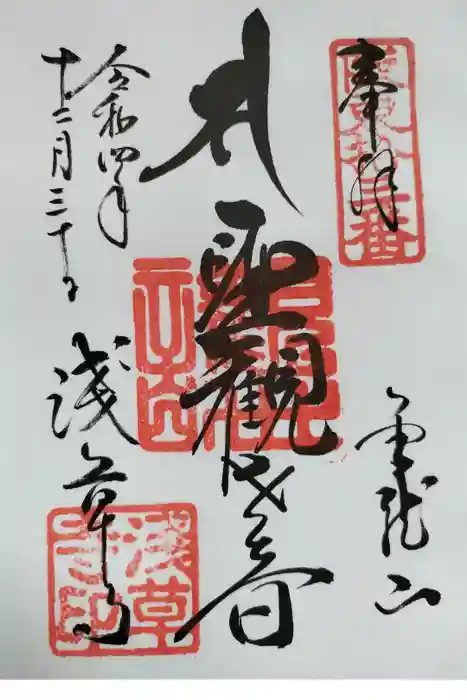 奉拝
坂東拾三番
金龍山
聖観世音
浅草寺
浅草寺印
令和四年
十二月三十日